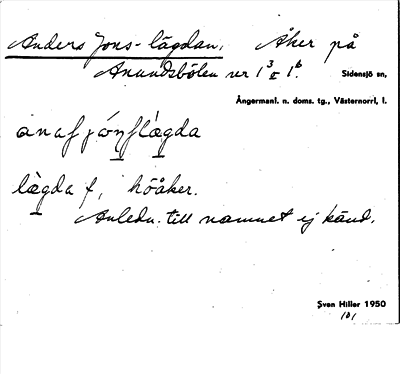 Anders Jons-lägdan. Åker på
Anundsbölen nr 1³ o 1⁶. Sidensjö sn,
Ångermanl. n. doms. tg., Västernorrl, l.
lägda f, höåker.
Anledn. till namnet ej känd.
Sven Hiller 1950